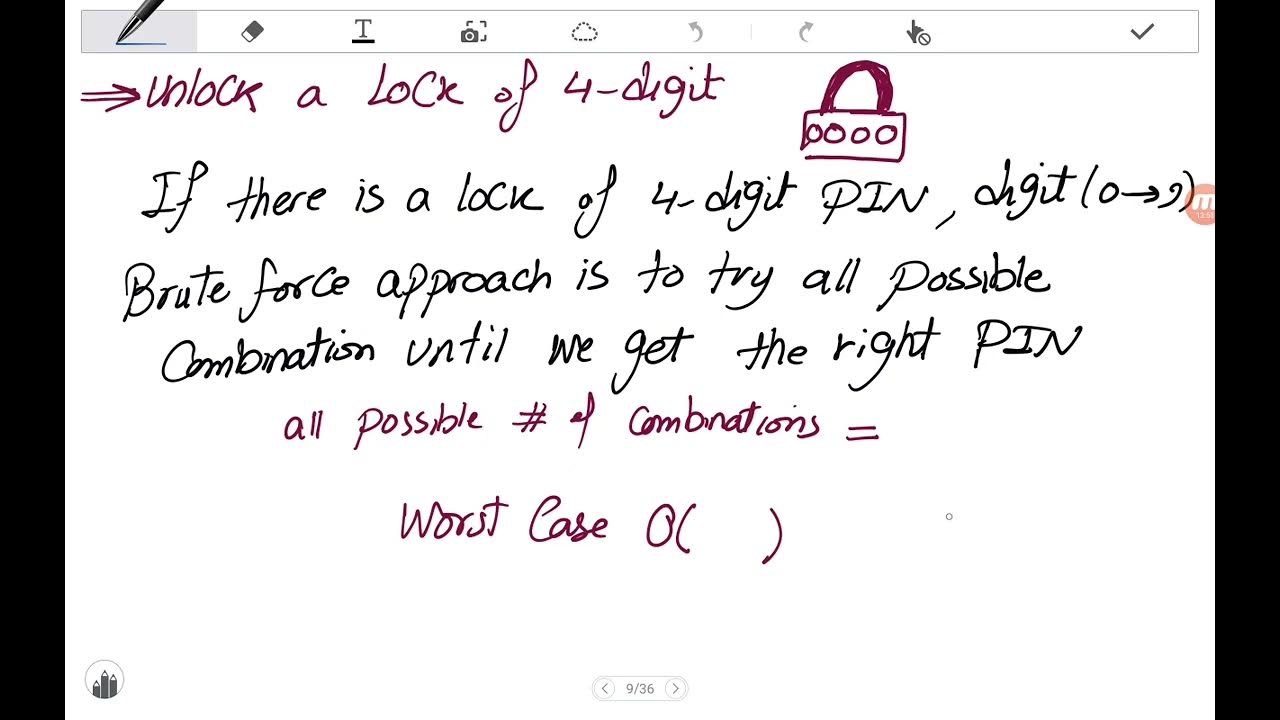 T
⇒ Unlock a Lock of 4-digit
If there is a lock of 4-digit PIN, digit (0→9)
13:55
Brute force approach is to try all possible
Combination until we get the right PIN
all possible # of combinations =
Worst Case O( )
9/36